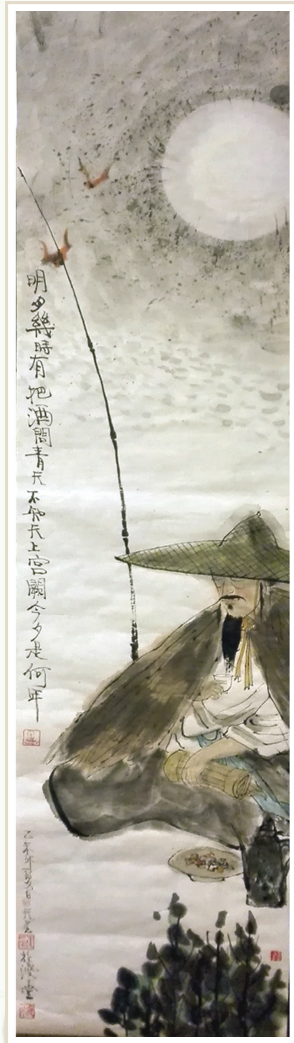 明月幾時有把酒問青天不知天上宮闕今夕是何年
堂